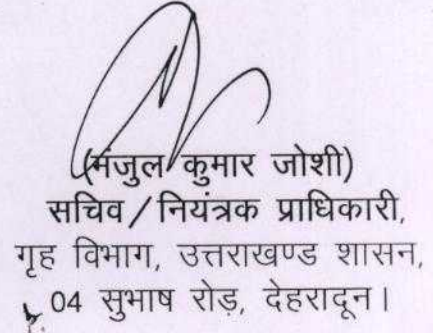 (मंजुल कुमार जोशी)
सचिव/नियंत्रक प्राधिकारी,
गृह विभाग, उत्तराखण्ड शासन,
04 सुभाष रोड़, देहरादून।